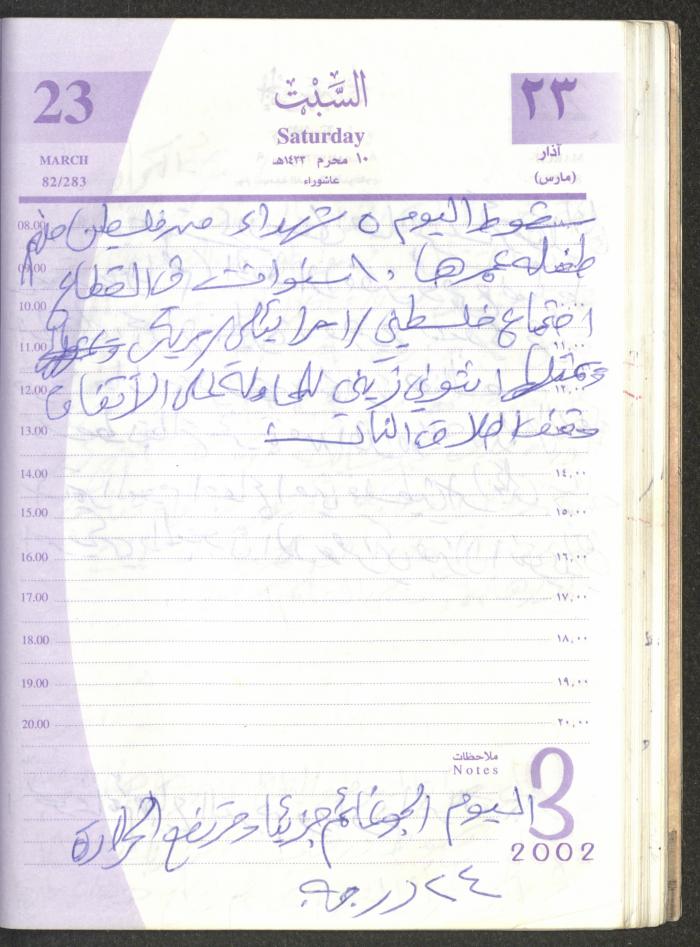 23
السَّبْت
٢٣
Saturday
MARCH
١٠ محرم ١٤٢٣هـ
آذار
82/283
عاشوراء
(مارس)
سقوط اليوم ٥ شهداء من فلسطين منهم
08.00
طفله عمرها ١٠ سنوات في القطاع
09.00
10.00 ١٠,٠٠
اجتماع فلسطيني اسرائيلي امريكي
11.00 ١١,٠٠
وتمثل انتوني زيني للمحاولة على الاتفاق
12.00 ١٢,٠٠
وقف اطلاق النار
13.00
14.00 ١٤,٠٠
15.00 ١٥,٠٠
16.00 ١٦,٠٠
17.00 ١٧,٠٠
18.00 ١٨,٠٠
19.00 ١٩,٠٠
20.00 ٢٠,٠٠
ملاحظات
Notes
3
2002
اليوم الجو غائم جزئيا ومرتفع الحرارة
٢٤ درجه